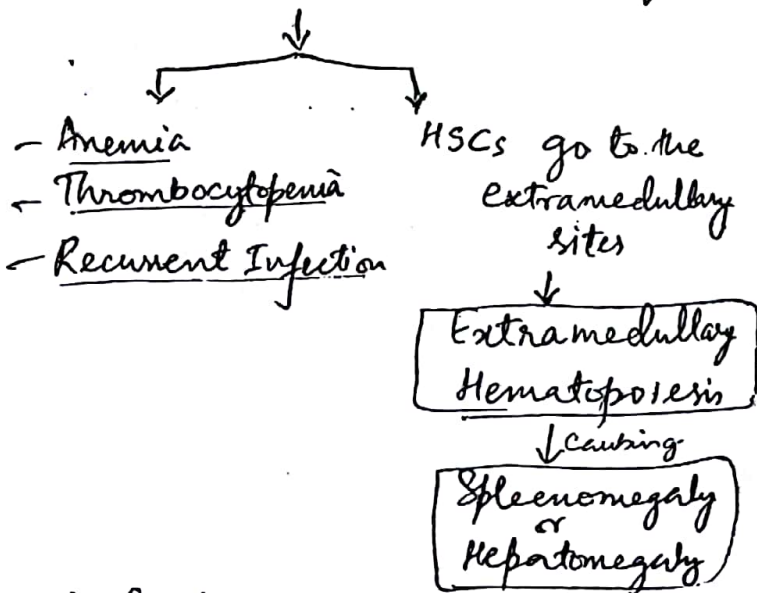 - Anemia
- Thrombocytopenia
- Recurrent Infection
HSCs go to the
extramedullary
sites
Extramedullary
Hematopoiesis
causing
Spleenomegaly
or
Hepatomegaly